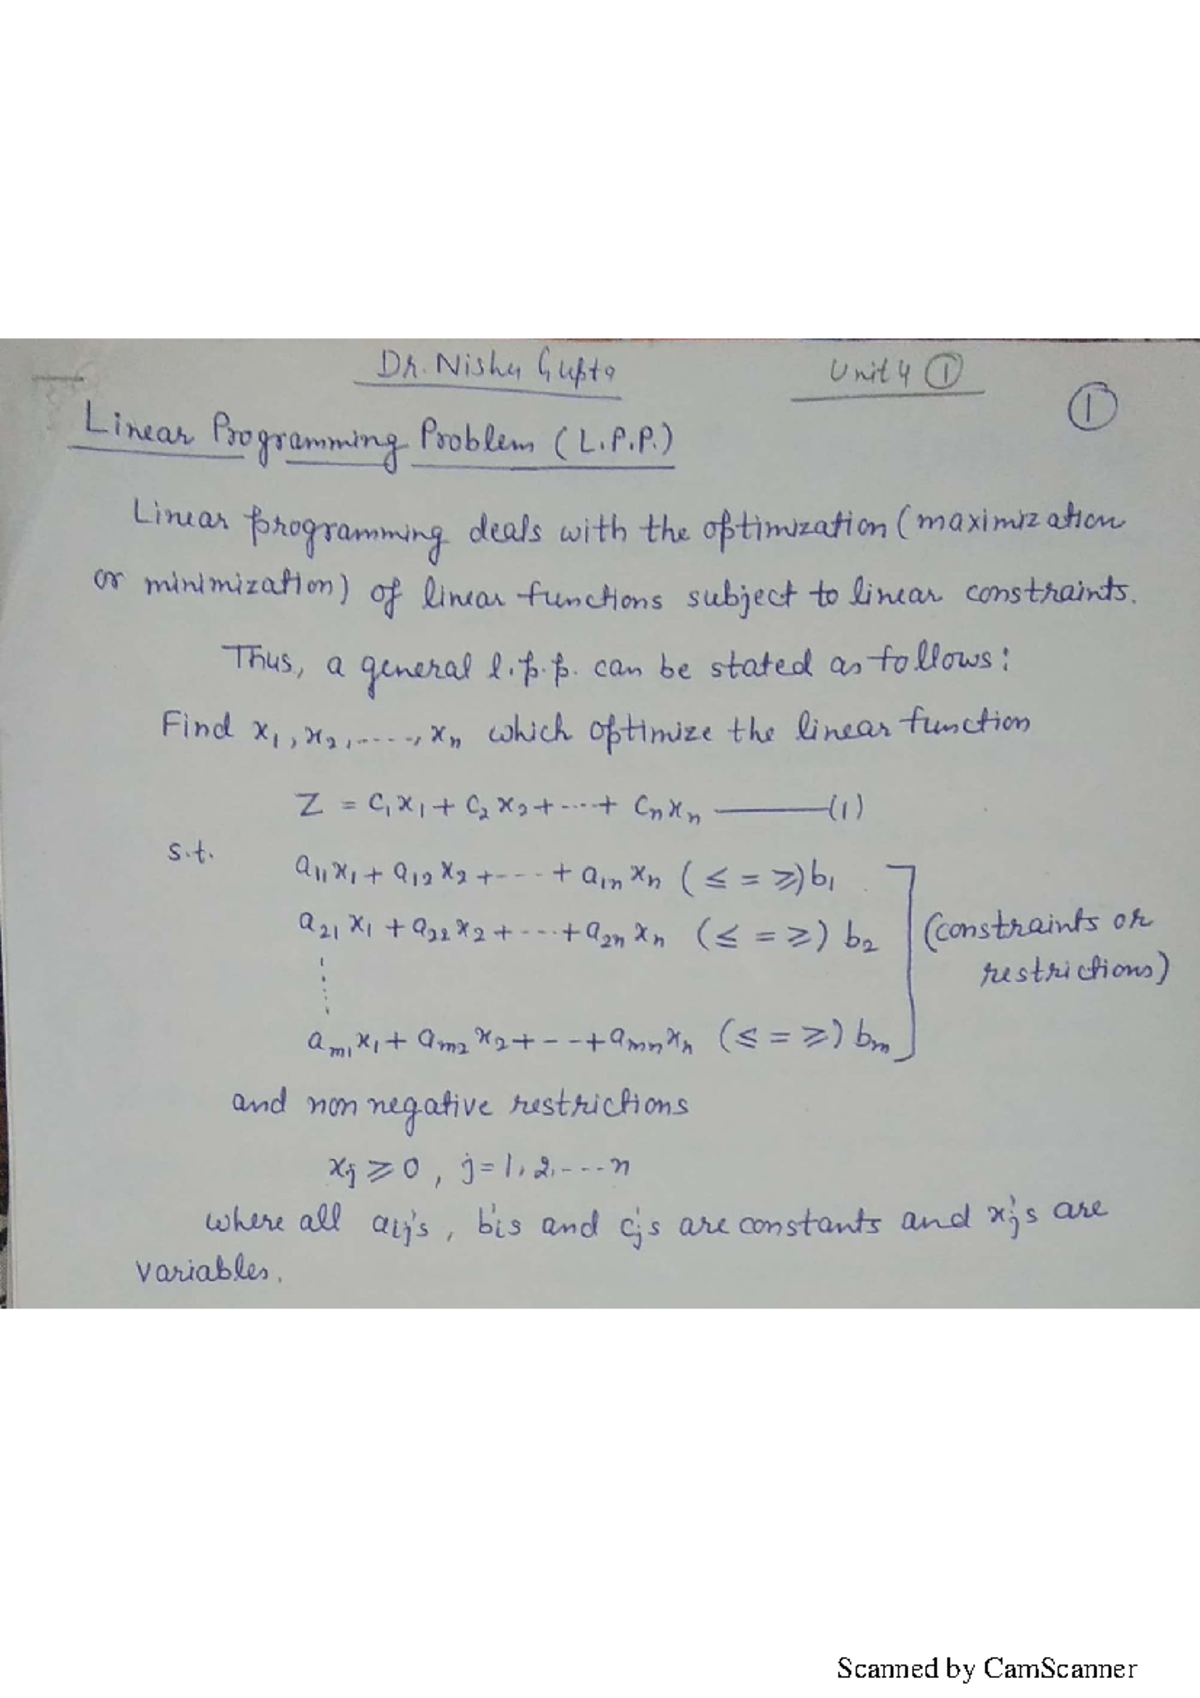 Dr. Nishu Gupta
Unit 4 ①
①
Linear Programming Problem (L.P.P.)
Linear programming deals with the optimization (maximization
or minimization) of linear functions subject to linear constraints.
Thus, a general l.p.p. can be stated as follows:
Find x₁, x₂, ....., xₙ which optimize the linear function
Z = c₁x₁ + c₂x₂ + ---- + cₙxₙ ———(1)
s.t.
a₁₁x₁ + a₁₂x₂ + --- - + a₁ₙxₙ (≤ = ≥) b₁
a₂₁x₁ + a₂₂x₂ + ---- + a₂ₙxₙ (≤ = ≥) b₂
(constraints or
restrictions)
aₘ₁x₁ + aₘ₂x₂ + - - + aₘₙxₙ (≤ = ≥) bₘ
and non negative restrictions
xⱼ ≥ 0, j = 1, 2, ---- n
where all aᵢⱼ's, bᵢ's and cⱼ's are constants and xⱼ's are
variables.
Scanned by CamScanner